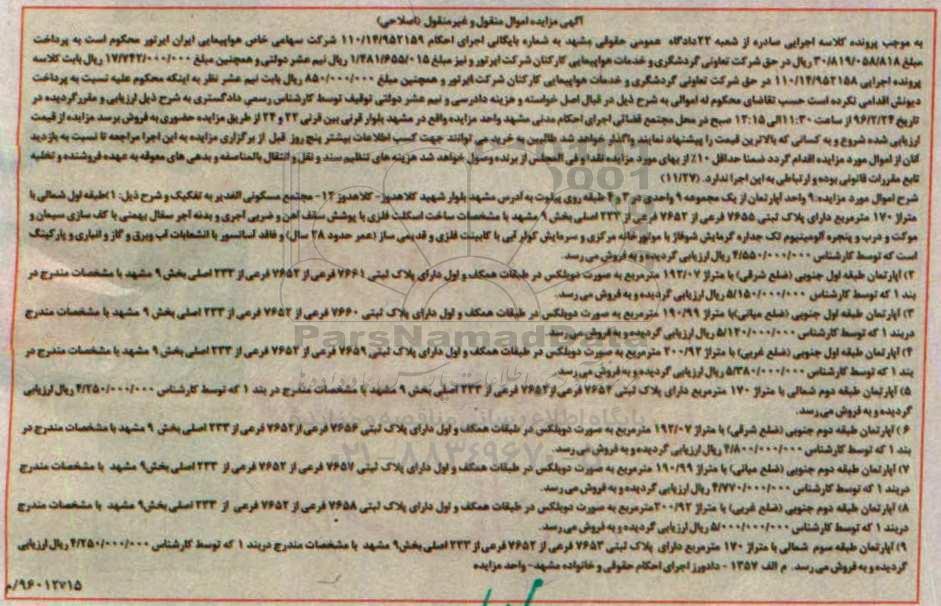 آگهی مزایده اموال منقول و غیر منقول (اصلاحی)
به موجب پرونده کلاسه اجرایی صادره از شعبه ۲۲ دادگاه عمومی حقوقی مشهد به شماره بایگانی اجرای احکام ۱۱۰/۱۴/۹۵۲۱۵۹ شرکت سهامی خاص هواپیمایی ایران ایرتور محکوم است به پرداخت
مبلغ ۳۰/۸۱۹/۰۵۸/۸۱۸ ریال در حق شرکت تعاونی گردشگری و خدمات هواپیمایی کارکنان شرکت ایرتور و نیز مبلغ ۱/۴۸۱/۶۵۵/۰۱۵ ریال نیم عشر دولتی و همچنین مبلغ ۱۷/۷۴۲/۰۰۰/۰۰۰ ریال بابت کلاسه
پرونده اجرایی ۱۱۰/۱۴/۹۵۲۱۵۸ در حق شرکت تعاونی گردشگری و خدمات هواپیمایی کارکنان شرکت ایرتور و همچنین مبلغ ۸۵۰/۰۰۰/۰۰۰ ریال بابت نیم عشر نظر به اینکه محکوم علیه نسبت به پرداخت
دیونش اقدامی نکرده است حسب تقاضای محکوم له اموالی به شرح ذیل در قبال اصل خواسته و هزینه دادرسی و نیم عشر دولتی توقیف توسط کارشناس رسمی دادگستری به شرح ذیل ارزیابی و مقرر گردیده در
تاریخ ۹۶/۲/۲۴ از ساعت ۱۱:۳۰ الی ۱۲:۱۵ صبح در محل مجتمع قضائی اجرای احکام مدنی مشهد واحد مزایده واقع در مشهد بلوار قرنی بین قرنی ۲۲ و ۲۴ از طریق مزایده حضوری به فروش برسد مزایده از قیمت
ارزیابی شده شروع و به کسانی که بالاترین قیمت را پیشنهاد نمایند واگذار خواهد شد طالبین به خرید می توانند جهت کسب اطلاعات بیشتر پنج روز قبل از برگزاری مزایده به این اجرا مراجعه تا نسبت به بازدید
آنان از اموال مورد مزایده اقدام گردد ضمنا حداقل ۱۰٪ از بهای مورد مزایده نقدا و فی المجلس از برنده وصول خواهد شد هزینه های تنظیم سند و نقل و انتقال بالمناصفه و بدهی های معوقه به عهده فروشنده و تخلیه
تابع مقررات قانونی بوده و ارتباطی به این اجرا ندارد. (۱۱/۲۷)
شرح اموال مورد مزایده: ۹ واحد آپارتمان از یک مجموعه ۹ واحدی در ۳ و ۴ طبقه روی پیلوت به آدرس مشهد بلوار شهید کلاهدوز- کلاهدوز ۱۲- مجتمع مسکونی الغدیر به تفکیک و شرح ذیل: ۱) طبقه اول شمالی با
متراژ ۱۷۰ مترمربع دارای پلاک ثبتی ۷۶۵۵ فرعی از ۷۶۵۲ فرعی از ۲۳۳ اصلی بخش ۹ مشهد با مشخصات ساخت اسکلت فلزی با پوشش سقف آهن و ضربی آجری و بدنه آجر سفال بهمنی با کف سازی سیمان و
موکت و درب و پنجره آلومینیوم تک جداره گرمایش شوفاژ با موتورخانه مرکزی و سرمایش کولر آبی با کابینت فلزی و قدیمی ساز (عمر حدود ۲۸ سال) و فاقد آسانسور با انشعابات آب و برق و گاز و انباری و پارکینگ
است که توسط کارشناس ۴/۵۵۰/۰۰۰/۰۰۰ ریال ارزیابی گردیده و به فروش می رسد.
۲) آپارتمان طبقه اول جنوبی (ضلع شرقی) با متراژ ۱۹۲/۰۷ مترمربع به صورت دوبلکس در طبقات همکف و اول دارای پلاک ثبتی ۷۶۶۱ فرعی از ۷۶۵۲ فرعی از ۲۳۳ اصلی بخش ۹ مشهد با مشخصات مندرج در
بند ۱ که توسط کارشناس ۵/۱۵۰/۰۰۰/۰۰۰ ریال ارزیابی گردیده و به فروش می رسد.
۳) آپارتمان طبقه اول جنوبی (ضلع میانی) با متراژ ۱۹۰/۹۹ مترمربع به صورت دوبلکس در طبقات همکف و اول دارای پلاک ثبتی ۷۶۶۰ فرعی از ۷۶۵۲ فرعی از ۲۳۳ اصلی بخش ۹ مشهد با مشخصات مندرج
در بند ۱ که توسط کارشناس ۵/۱۲۰/۰۰۰/۰۰۰ ریال ارزیابی گردیده و به فروش می رسد.
۴) آپارتمان طبقه اول جنوبی (ضلع غربی) با متراژ ۲۰۰/۹۲ مترمربع به صورت دوبلکس در طبقات همکف و اول دارای پلاک ثبتی ۷۶۵۹ فرعی از ۷۶۵۲ فرعی از ۲۳۳ اصلی بخش ۹ مشهد با مشخصات مندرج در
بند ۱ که توسط کارشناس ۵/۳۸۰/۰۰۰/۰۰۰ ریال ارزیابی گردیده و به فروش می رسد.
۵) آپارتمان طبقه دوم شمالی با متراژ ۱۷۰ مترمربع دارای پلاک ثبتی ۷۶۵۴ فرعی از ۷۶۵۲ فرعی از ۲۳۳ اصلی بخش ۹ مشهد با مشخصات مندرج در بند ۱ که توسط کارشناس ۴/۲۵۰/۰۰۰/۰۰۰ ریال ارزیابی
گردیده و به فروش می رسد.
۶) آپارتمان طبقه دوم جنوبی (ضلع شرقی) با متراژ ۱۹۲/۰۷ مترمربع به صورت دوبلکس در طبقات همکف و اول دارای پلاک ثبتی ۷۶۵۶ فرعی از ۷۶۵۲ فرعی از ۲۳۳ اصلی بخش ۹ مشهد با مشخصات مندرج در
بند ۱ که توسط کارشناس ۴/۸۰۰/۰۰۰/۰۰۰ ریال ارزیابی گردیده و به فروش می رسد.
۷) آپارتمان طبقه دوم جنوبی (ضلع میانی) با متراژ ۱۹۰/۹۹ مترمربع به صورت دوبلکس در طبقات همکف و اول دارای پلاک ثبتی ۷۶۵۷ فرعی از ۷۶۵۲ فرعی از ۲۳۳ اصلی بخش ۹ مشهد با مشخصات مندرج
در بند ۱ که توسط کارشناس ۴/۷۷۰/۰۰۰/۰۰۰ ریال ارزیابی گردیده و به فروش می رسد.
۸) آپارتمان طبقه دوم جنوبی (ضلع غربی) با متراژ ۲۰۰/۹۲ مترمربع به صورت دوبلکس در طبقات همکف و اول دارای پلاک ثبتی ۷۶۵۸ فرعی از ۷۶۵۲ فرعی از ۲۳۳ اصلی بخش ۹ مشهد با مشخصات مندرج
در بند ۱ که توسط کارشناس ۵/۰۰۰/۰۰۰/۰۰۰ ریال ارزیابی گردیده و به فروش می رسد.
۹) آپارتمان طبقه سوم شمالی با متراژ ۱۷۰ مترمربع دارای پلاک ثبتی ۷۶۵۳ فرعی از ۷۶۵۲ فرعی از ۲۳۳ اصلی بخش ۹ مشهد با مشخصات مندرج در بند ۱ که توسط کارشناس ۴/۲۵۰/۰۰۰/۰۰۰ ریال ارزیابی
گردیده و به فروش می رسد. م الف ۱۳۵۷ - دادورز اجرای احکام حقوقی و خانواده مشهد- واحد مزایده
۹۶۰۱۲۷۱۵/م
ParsNamadData
پایگاه اطلاع رسانی مناقصه و مزایده
۰۲۱-۸۸۳۴۹۶۷۰